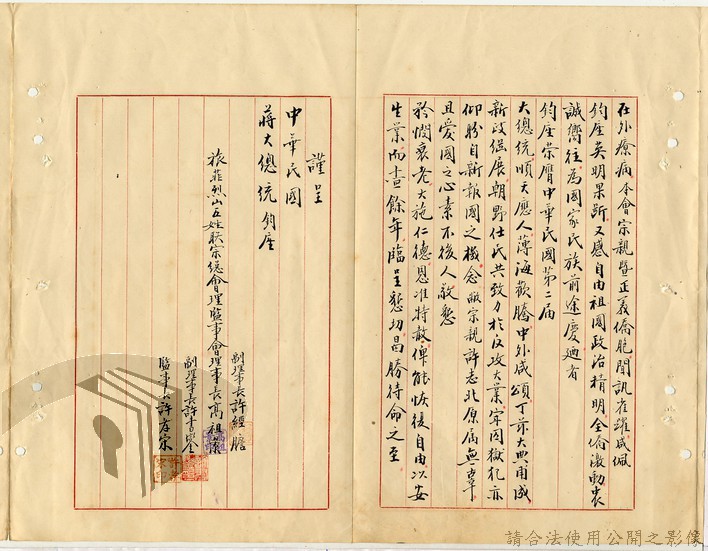 在外療病本會宗親暨正義僑胞聞訊雀躍咸佩
鈞座英明果斷又感自由祖國政治精明全僑激動衷
誠嚮往為國家民族前途慶迺者
鈞座榮膺中華民國第二屆
大總統順天應人薄海歡騰中外咸頌丁茲大典甫成
新政縕展朝野仕氏共致力於反攻大業牢囚獄犯亦
仰盼自新報國之機念敝宗親許志北原屬無辜
且愛國之心素不後人敬懇
矜憫衰老大施仁德恩准特赦俾能恢復自由以安
生業而盡餘年臨呈懇切曷勝待命之至
謹呈
中華民國
蔣大總統鈞座
旅菲烈山五姓联宗總會理監事會理事長高祖
副理事長許經
副理事長許書
監事長許孝宗
請合法使用公開之影像